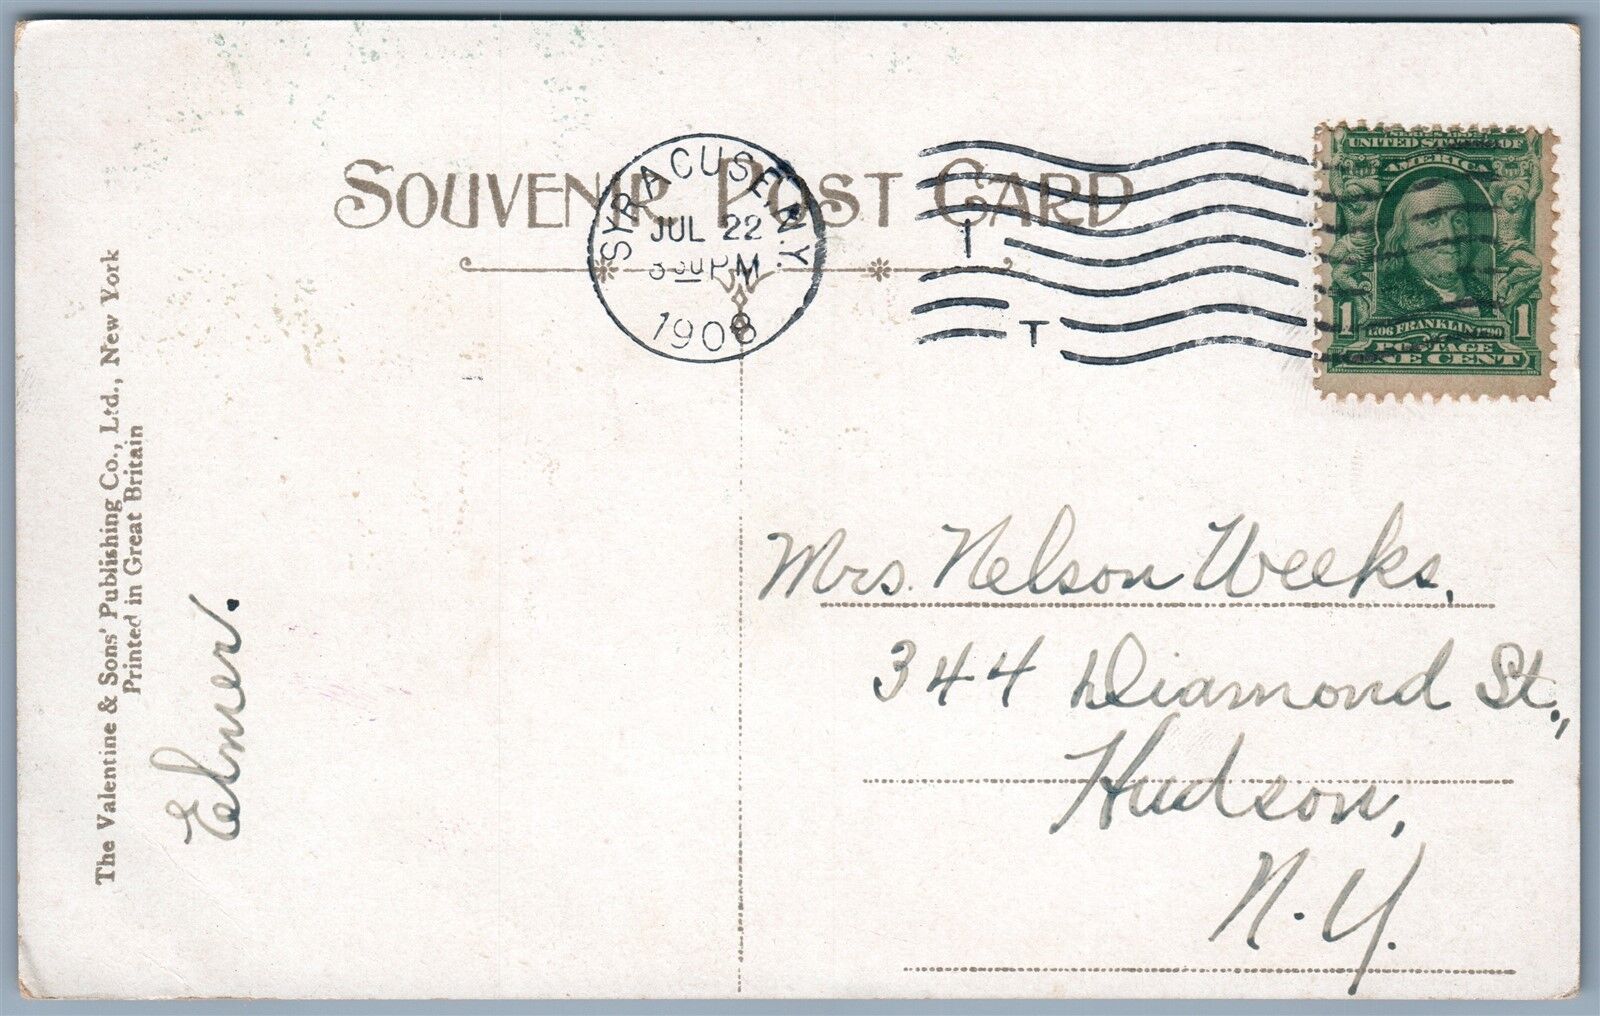 SOUVENIR POST CARD
SYRACUSE, N.Y.
JUL 22
PM
1908
I
T
SERIES 1902
UNITED STATES OF
AMERICA
1 1706 FRANKLIN 1790 1
POSTAGE
ONE CENT
The Valentine & Sons' Publishing Co., Ltd., New York
Printed in Great Britain
Elmer.
Mrs. Nelson Weeks,
344 Diamond St.,
Hudson,
N.Y.